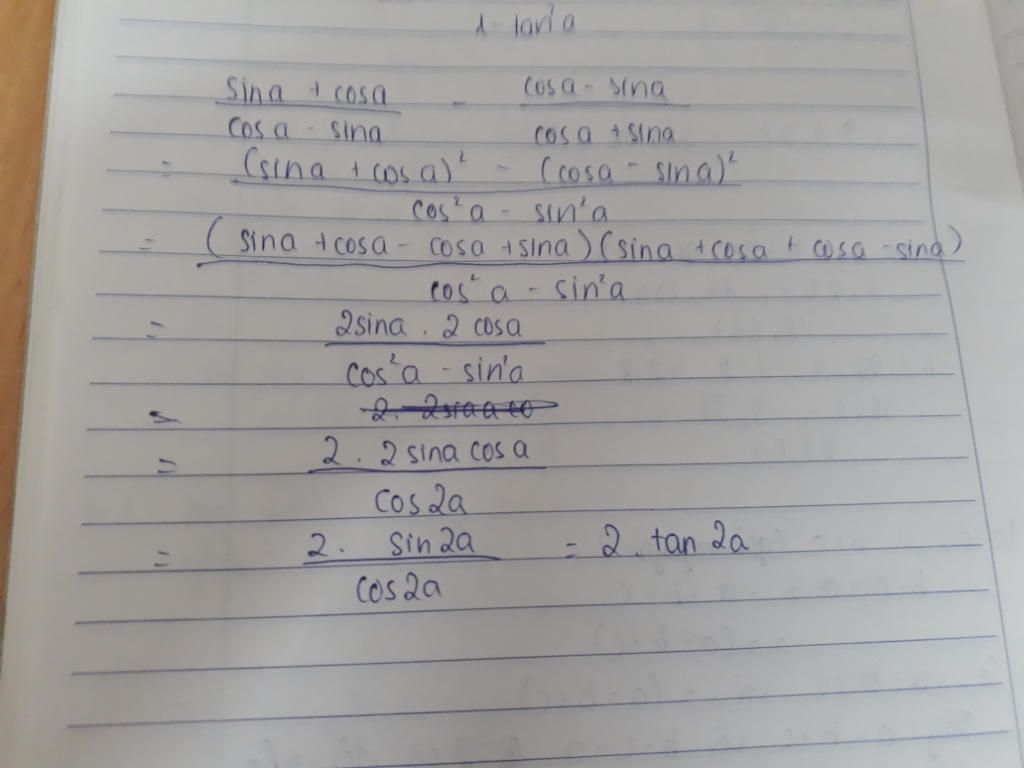 1 - tan²a
sina + cosa - cosa - sina
cosa - sina cosa + sina
= (sina + cosa)² - (cosa - sina)²
cos²a - sin²a
= (sina + cosa - cosa + sina)(sina + cosa + cosa - sina)
cos²a - sin²a
= 2sina . 2cosa
cos²a - sin²a
=
= 2 . 2sina cosa
cos2a
= 2 . sin2a = 2 . tan 2a
cos2a